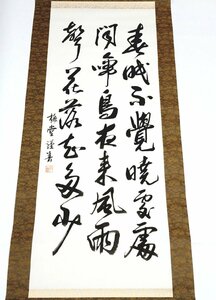 春眠不覺曉處處
聞啼鳥夜來風雨
聲花落知多少
梅雪謹書